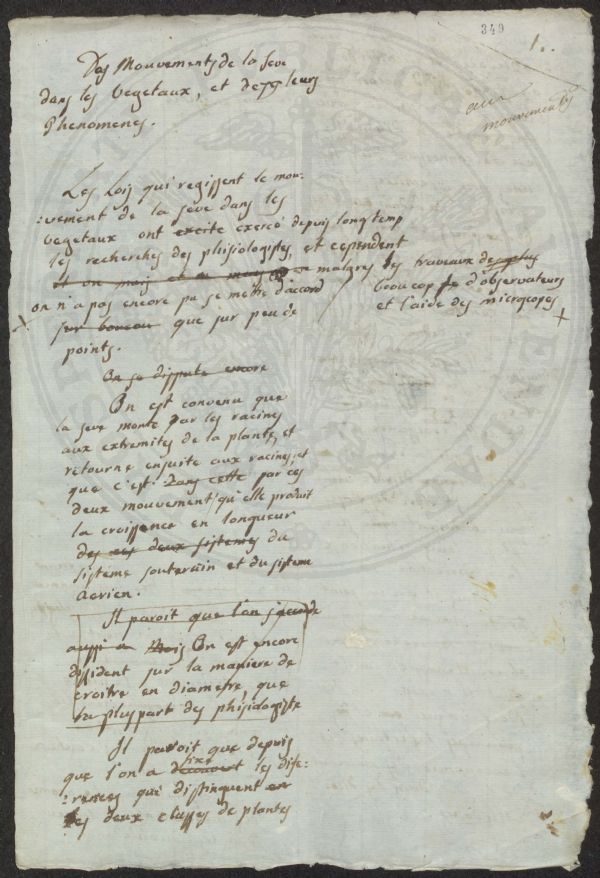 349
1.
Des Mouvements de la seve
dans les vegetaux, et de leurs
Phenomenes.
aux
mouvements
Les Lois qui regissent le mou-
:vement de la seve dans les
vegetaux ont excite exercé depuis longtemp
les recherches des phisiologistes, et cependent
malgres les travaux de plus
beaucop d'observateurs
et l'aide des microcopes
on n'a pas encore pu se mettre d'accord
sur que sur peu de
points.
On se dispute encore
On est convenu que
la seve monte par les racines
aux extremites de la plante, et
retourne ensuite aux racines, et
que c'est dans cette par ces
deux mouvement qu'elle produit
la croissence en longueur
des deux sistemes du
sisteme souterain et du sisteme
aerien.
Il paroit que l'on
aussi Mais On est encore
dissident sur la maniere de
croitre en diametre, que
la pluspart des phisiologiste
Il paroit que depuis
que l'on a decouvert fixé les dife-
:rences qui distinguent en
les deux classes de plantes